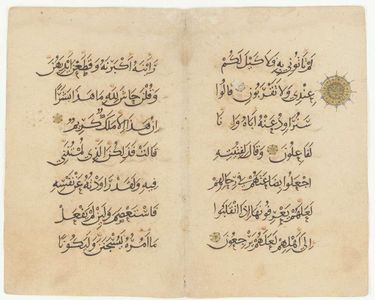 لَمْ تَأْتُونِي بِهِ فَلَا كَيْلَ لَكُمْ
عِنْدِي وَلَا تَقْرَبُونِ قَالُوا
سَنُرَاوِدُ عَنْهُ أَبَاهُ وَإِنَّا
لَفَاعِلُونَ وَقَالَ لِفِتْيَتِهِ
اجْعَلُوا بِضَاعَتَهُمْ فِي رِحَالِهِمْ
لَعَلَّهُمْ يَعْرِفُونَهَا إِذَا انْقَلَبُوا
إِلَى أَهْلِهِمْ لَعَلَّهُمْ يَرْجِعُونَ
رَأَيْنَهُ أَكْبَرْنَهُ وَقَطَّعْنَ أَيْدِيَهُنَّ
وَقُلْنَ حَاشَ لِلَّهِ مَا هَذَا بَشَرًا
إِنْ هَذَا إِلَّا مَلَكٌ كَرِيمٌ
قَالَتْ فَذَلِكُنَّ الَّذِي لُمْتُنَّنِي
فِيهِ وَلَقَدْ رَاوَدْتُهُ عَنْ نَفْسِهِ
فَاسْتَعْصَمَ وَلَئِنْ لَمْ يَفْعَلْ
مَا آمُرُهُ لَيُسْجَنَنَّ وَلَيَكُونًا